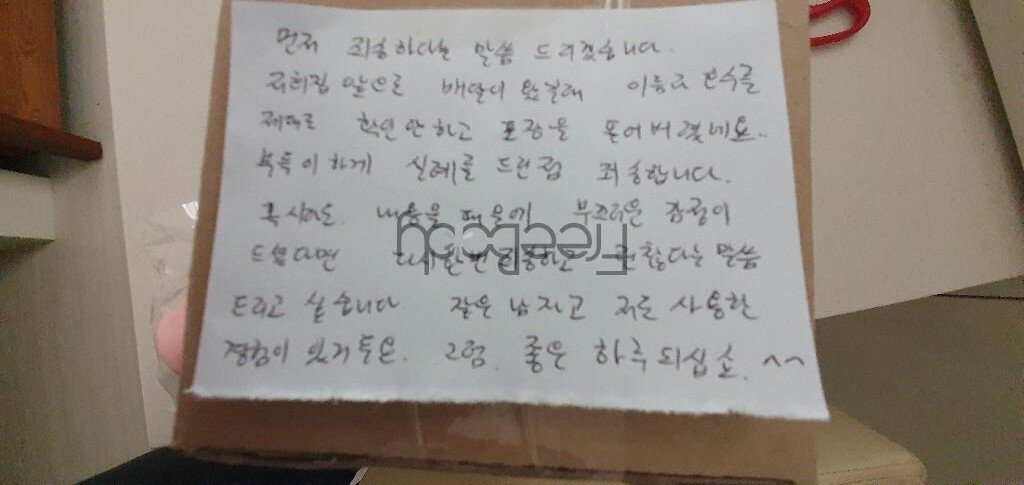 먼저 죄송하다는 말씀 드리겠습니다.
저희집 앞으로 배달이 왔길래 이름과 번수를
제대로 확인 안 하고 포장을 뜯어버렸네요.
부득이하게 실례를 드린점 죄송합니다.
혹시라도. 내용물 때문에 부끄러운 감정이
드셨다면 다시한번 죄송하고 괜찮다는 말씀
드리고 싶습니다 같은 남자고 저도 사용한
경험이 있거든요. 그럼. 좋은 하루 되십쇼. ^^